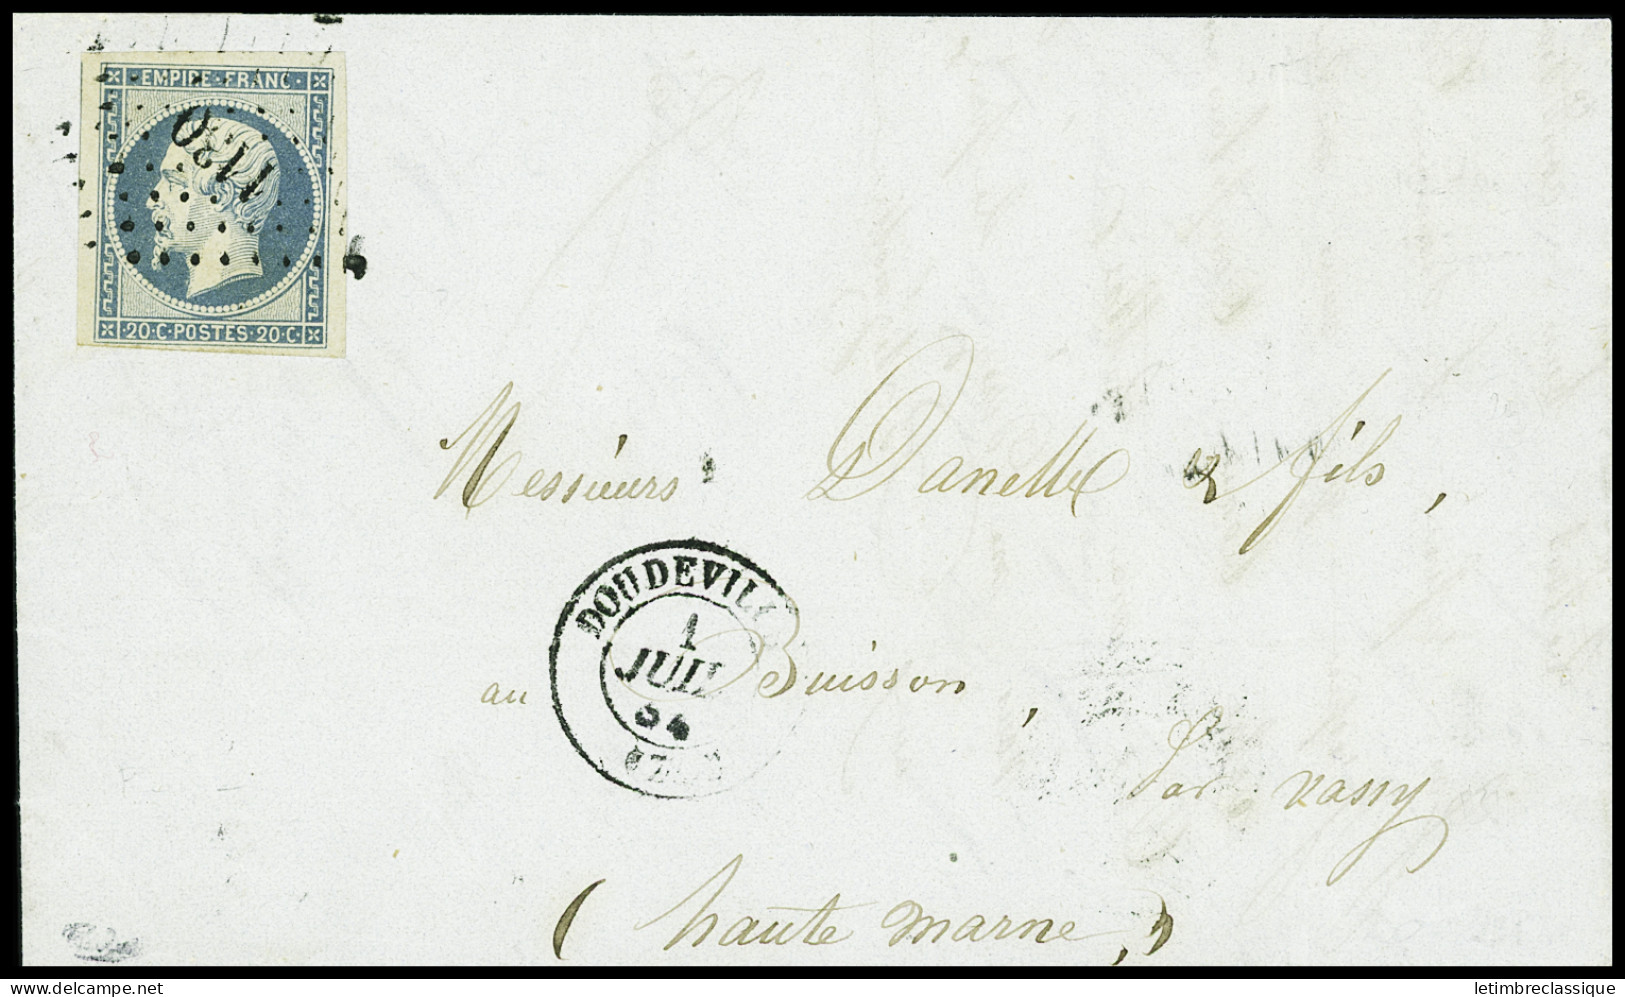 EMPIRE · FRANC ·
· 20 · C · POSTES · 20 · C ·
Messieurs Danelle & fils ,
DOUDEVILL
1
JUIL
54
au Buisson ,
Par Vassy
( haute marne, )
delcampe.net
letimbreclassique